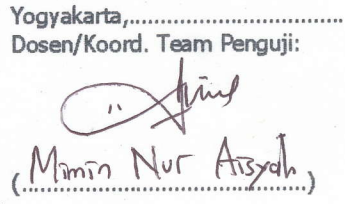 Yogyakarta,..............................
Dosen/Koord. Team Penguji:
(Mimin Nur Aisyah)